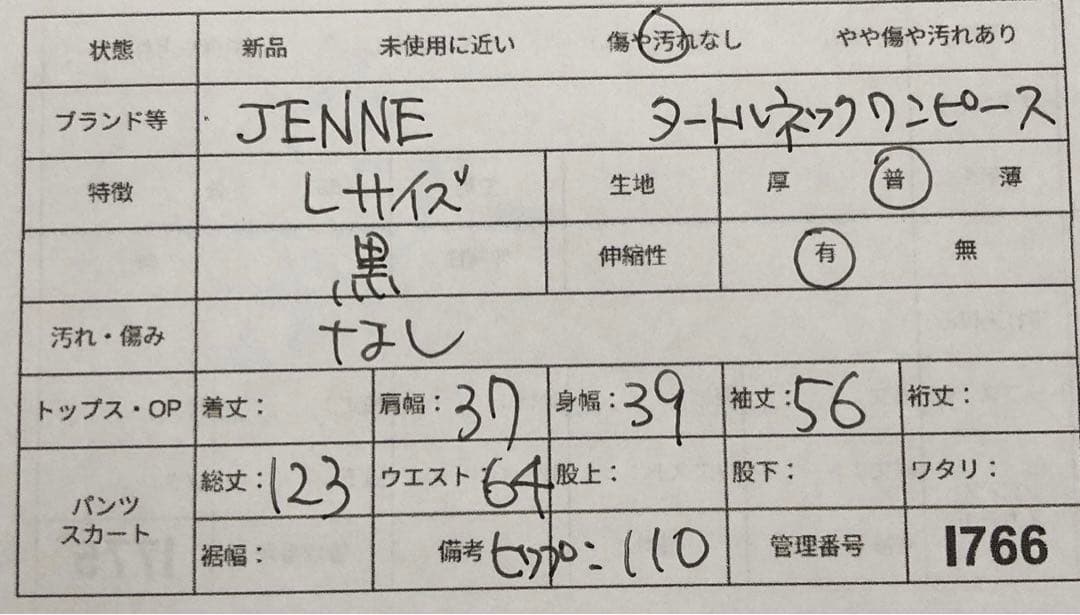 状態 新品 未使用に近い 傷や汚れなし やや傷や汚れあり
ブランド等 JENNE タートルネックワンピース
特徴 Lサイズ 生地 厚 普 薄
黒 伸縮性 有 無
汚れ・傷み なし
トップス・OP 着丈： 肩幅：37 身幅：39 袖丈：56 裄丈：
パンツ スカート 総丈：123 ウエスト：64 股上： 股下： ワタリ：
裾幅： 備考 ヒップ：110 管理番号 I766